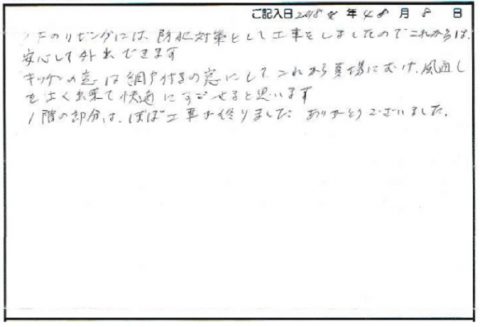 ご記入日 2018年 4月 8日
のリビングには、防犯対策として工事をしましたのでこれからは、
安心して外出できます
キッチンの窓は網戸付きの窓にして これから夏場にむけ、風通し
をよく出来て快適にすごせると思います
1階の部分は、ほぼ工事が終りました ありがとうございました。